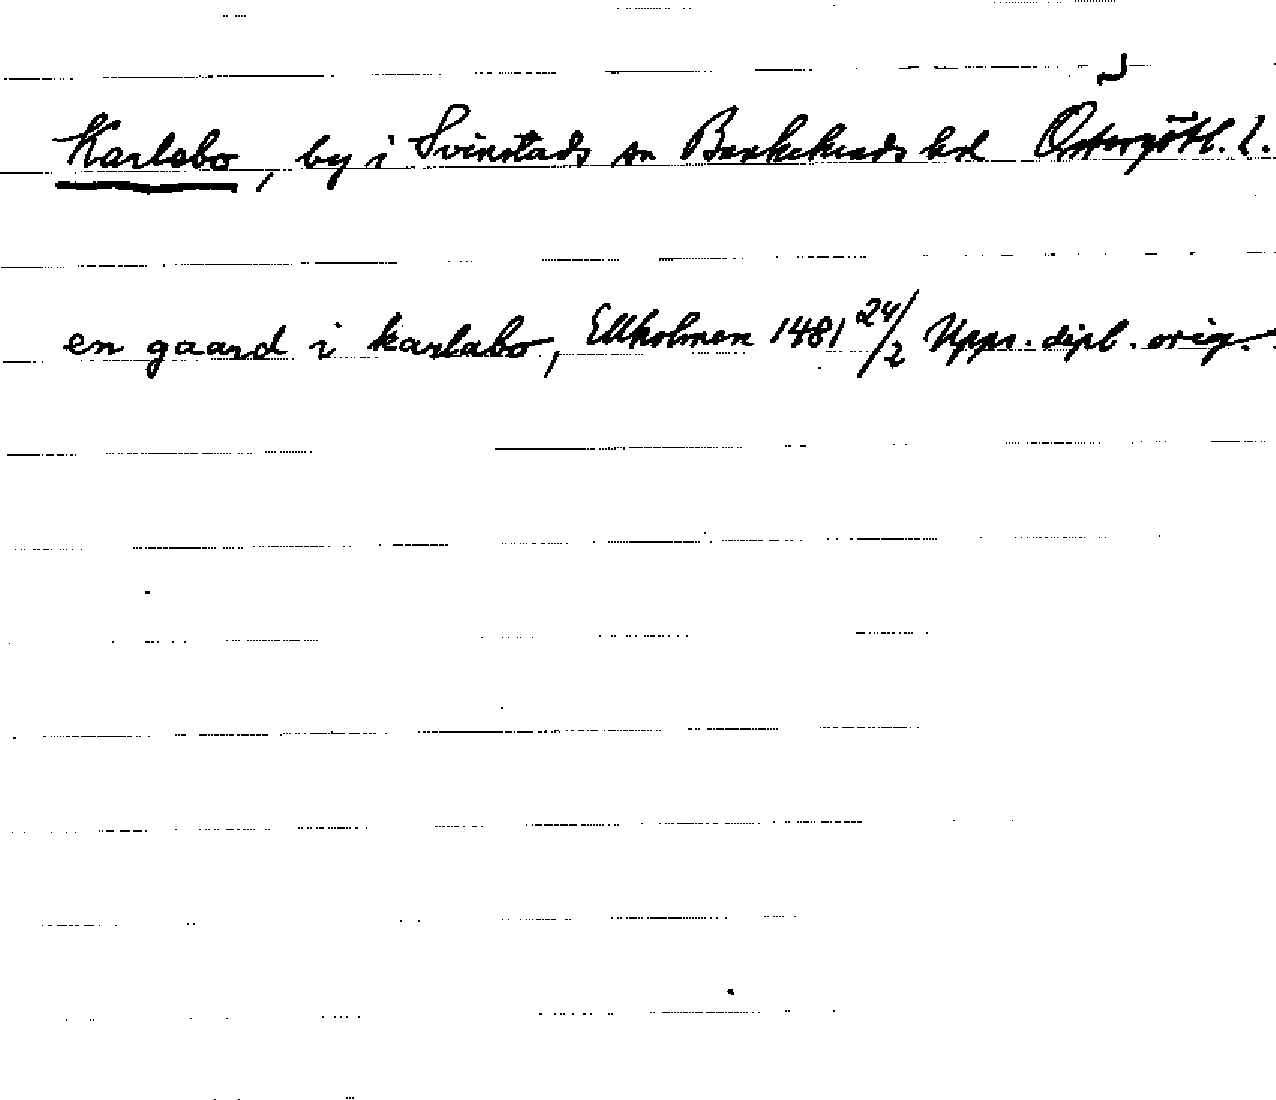 Karlabo, by i Svinstads sn Bankekinds hd Östergötl. l.
en gaard i karlabo, Ellholmen 1481 24/2 Upps. dipl. orig.